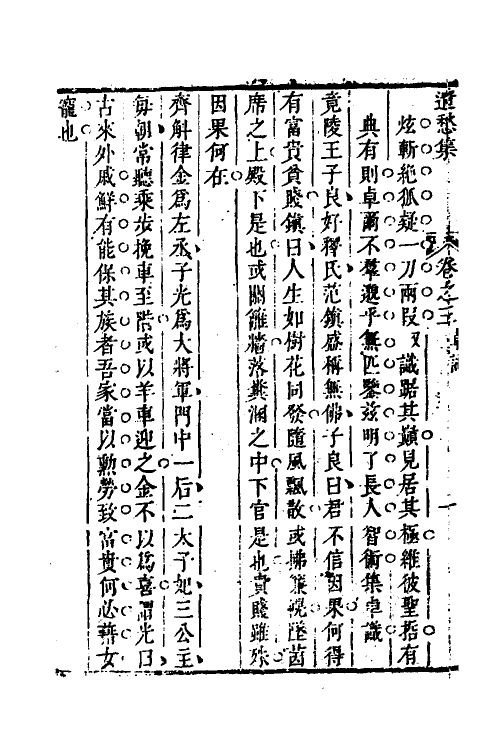 遣愁集 卷之十 卓識 一
炫斬絶狐疑一刀兩叚識踞其巔見居其極維彼聖哲有
典有則卓爾不羣邈乎無匹鑒茲明了長人智術集卓識
竟陵王子良好釋氏范鎭盛稱無佛子良曰君不信因果何得
有富貴貧賤鎭曰人生如樹花同發隨風飄散或拂簾幌墜茵
席之上殿下是也或關籬牆落糞溷之中下官是也貴賤雖殊
因果何在
齊斛律金爲左丞子光爲大將軍門中一后二太子妃三公主
每朝常聽乘步挽車至階或以羊車迎之金不以爲喜謂光曰
古來外戚鮮有能保其族者吾家當以勲勞致富貴何必藉女
寵也